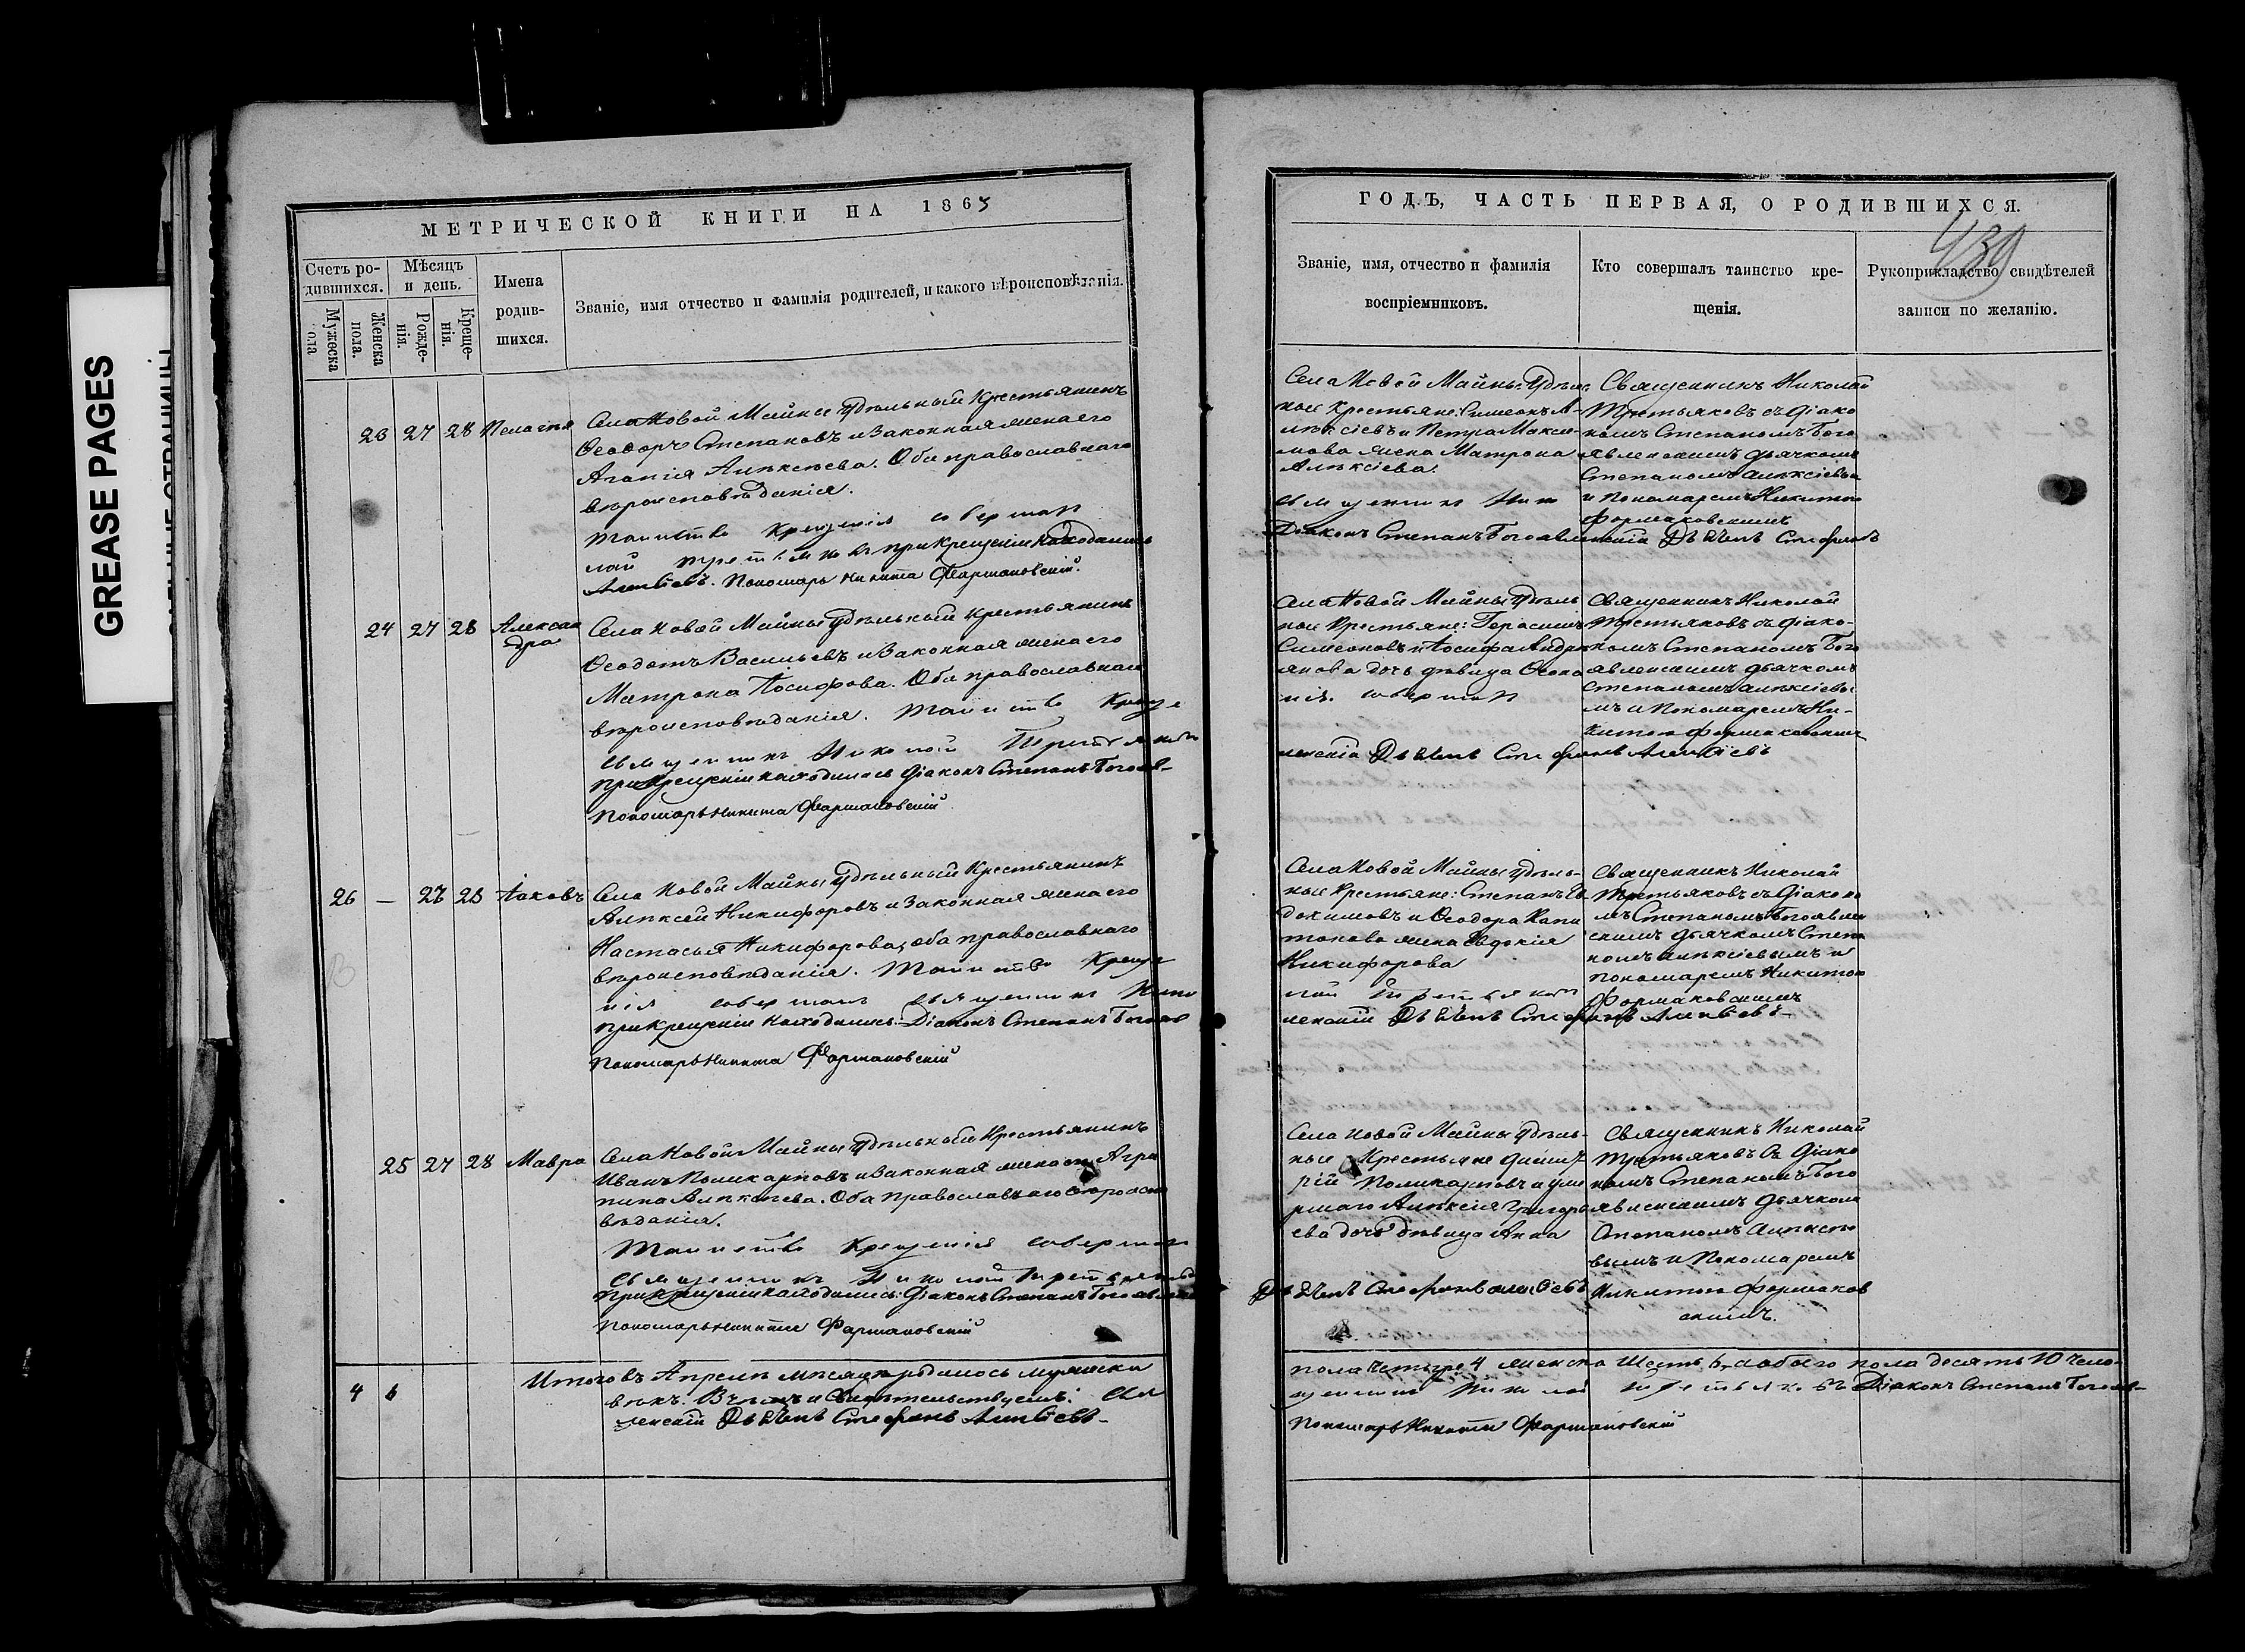 GREASE PAGES
МЕТРИЧЕСКОЙ КНИГИ НА 1865
Счетъ ро-
дившихся.
Мѣсяцъ
и день.
Мужеска
пола
Женска
пола.
Рожде-
нія.
Креще-
нія.
Имена
родив-
шихся.
Званіе, имя отчество и фамилія родителей, и какого вѣроисповѣданія.
23 27 28 Пелагія Села Новой Майны удѣльный крестьянинъ
Ѳеодоръ Степановъ и законная жена его
Агапія Алѣксѣева. Оба православнаго
вѣроисповѣданія.
Таинство крещенія совершал
при крещеніи находились
Алексіевъ. Пономарь Никита Фармаковскій.
24 27 28 Алексан
дра
Села Новой Майны удѣльный крестьянинъ
Ѳеодотъ Васильевъ и законная жена его
Матрона Іосифова. Оба православнаго
вѣроисповѣданія. Таинство Креще
священникъ Николай Третьяковъ
при крещеніи находились Діаконъ Степанъ Богояв-
Пономарь Никита Фармаковскій
26 — 27 28 Іаковъ Села Новой Майны удѣльный крестьянинъ
Алѣксей Никифоровъ и законная жена его
Настасья Никифорова, оба православнаго
вѣроисповѣданія. Таинство Креще
нія совершалъ священникъ Нико
при крещеніи находились: Діаконъ Степанъ Богояв
Пономарь Никита Фармаковскій
25 27 28 Мавра Села Новой Майны удѣльный крестьянинъ
Иванъ Поликарповъ и законная жена его Агри
пина Алѣксѣева. Оба православнаго вѣроиспо
вѣданія.
Таинство Крещенія совершал
священникъ Николай Третьяковъ
при крещеніи находились: Діаконъ Степанъ Богоявлен
Пономарь Никита Фармаковскій
4 6 Итого въ Апрелѣ мѣсяцѣ родилось мужеска
вѣкъ. свидѣтельствуемъ: Свя
ленскій Дьячекъ Стефанъ Алексіевъ
ГОДЪ, ЧАСТЬ ПЕРВАЯ, О РОДИВШИХСЯ.
439
Званіе, имя, отчество и фамилія
воспріемниковъ.
Кто совершалъ таинство кре-
щенія.
Рукоприкладство свидѣтелей
записи по желанію.
Села Новой Майны удѣль
ные крестьяне: Симеонъ А-
лѣксіевъ и Петра Макси-
мова жена Матрона
Алѣксіева.
священникъ Нико
Діаконъ Степанъ Богоявленскій Дьячекъ Стефанъ
Священникъ Николай
Третьяковъ съ діако
номъ Степаномъ Бого
явленскимъ дьячкомъ
Степаномъ Алѣксіевы
и Пономаремъ Никитою
Фармаковскимъ
Села Новой Майны удѣль
ные крестьяне: Герасимъ
Симеоновъ и Іосифа Андри
янова дочь дѣвица
нія. совершал
ленскій Дьячекъ Стефанъ Алексіевъ
Священникъ Николай
Третьяковъ съ діако-
номъ Степаномъ Бого
явленскимъ дьячкомъ
Степаномъ Алѣксіевы
мъ и Пономаремъ Ни-
китою Фармаковским
Села Новой Майны удѣль-
ные крестьяне: Степанъ Ев
докимовъ и Ѳеодора Капи
тонова жена Евдокія
Никифорова
лай Третьяковъ
ленскій Дьячекъ Стефанъ Алексіевъ
Священникъ Николай
Третьяковъ съ Діаконо
мъ Степаномъ Богоявлен
скимъ дьячкомъ Степа
номъ Алѣксіевымъ и
пономаремъ Никитою
Фармаковскимъ
Села Новой Майны удѣль-
ные Крестьяне Дмит
рій Поликарповъ и уме
ршаго Алѣксія Григорь
ева дочь дѣвица Анна
Дьячекъ Стефанъ Алексіевъ
Священникъ Николай
Третьяковъ съ Діако
номъ Степаномъ Бого
явленскимъ дьячкомъ
Степаномъ Алѣксѣе
вымъ и Пономаремъ
Никитою Фармаков
скимъ.
пола четыре 4 женска шесть 6, а обоего пола десять 10 чело-
щенникъ Николай Третьяковъ Діаконъ Степанъ Богояв-
Пономарь Никита Фармаковскій